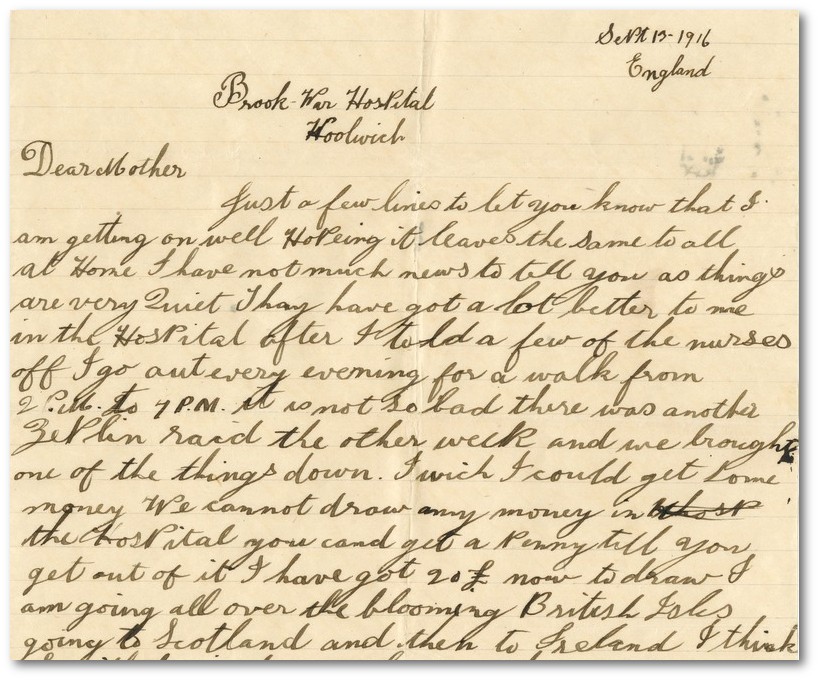 Sept 13-1916
England
Brook-War Hospital
Woolwich
Dear Mother
Just a few lines to let you know that I
am getting on well Hopeing it leaves the same to all
at Home I have not much news to tell you as things
are very Quiet Thay have got a lot better to me
in the Hospital after I told a few of the nurses
off I go out every evening for a walk from
2 P.M. to 7 P.M. it is not so bad there was another
Zeplin raid the other week and we brought
one of the things down. I wich I could get some
money We cannot draw any money in
the hospital you cand get a penny till you
get out of it I have got 20 £ now to draw I
am going all over the blooming British Isles
going to Scotland and then to Ireland I think